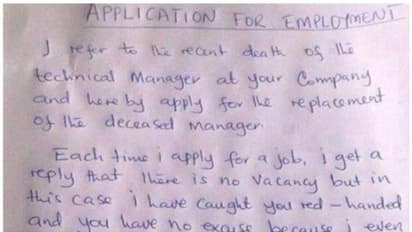 APPLICATION FOR EMPLOYMENT
I refer to the recent death of the
technical Manager at your Company
and here by apply for the replacement
of the deceased manager.
Each time i apply for a job, i get a
reply that there is no vacancy but in
this case i have caught you red-handed
and you have no excuse because i even